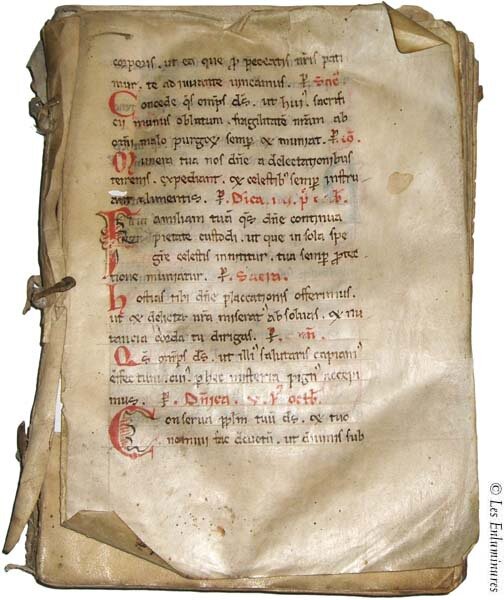 conperis. ut ea que p̄ peccatis n̄ris pati
mur. te adiuuante uincamus. P̄.
Concede q̄s om̄ps d̄s. ut hui' sacrifi
cii munus oblatum. fragilitatē n̄ram ab
om̄i malo purget semp̄ et muniat. P̄. cō.
Munera tua nos dn̄e a delectationibus
terrenis. expediant. et celestib' semp̄ instru
ant alimentis. P̄. Dn̄ica
Familiam tuā q̄s dn̄e continua
pietate custodi. ut que in sola spe
gr̄e celestis innititur. tua semp̄ ̄ptec
tione muniatur. P̄. Sacra.
hostias tibi dn̄e placcationis offerimus.
ut et delicta n̄ra miserat' absoluas. et nu
tancia corda tu dirigas. P̄.
Q̄s om̄ps d̄s. ut illi' salutaris capiam'
effectum. cui' p̄ hec misteria pign' accepi
mus. P̄. Dn̄ica. v. p' octb̄.
Conserua pp̄lm tuū d̄s. et tuo
nomini fac deuotū. ut diuinis sub
© Les Enluminures